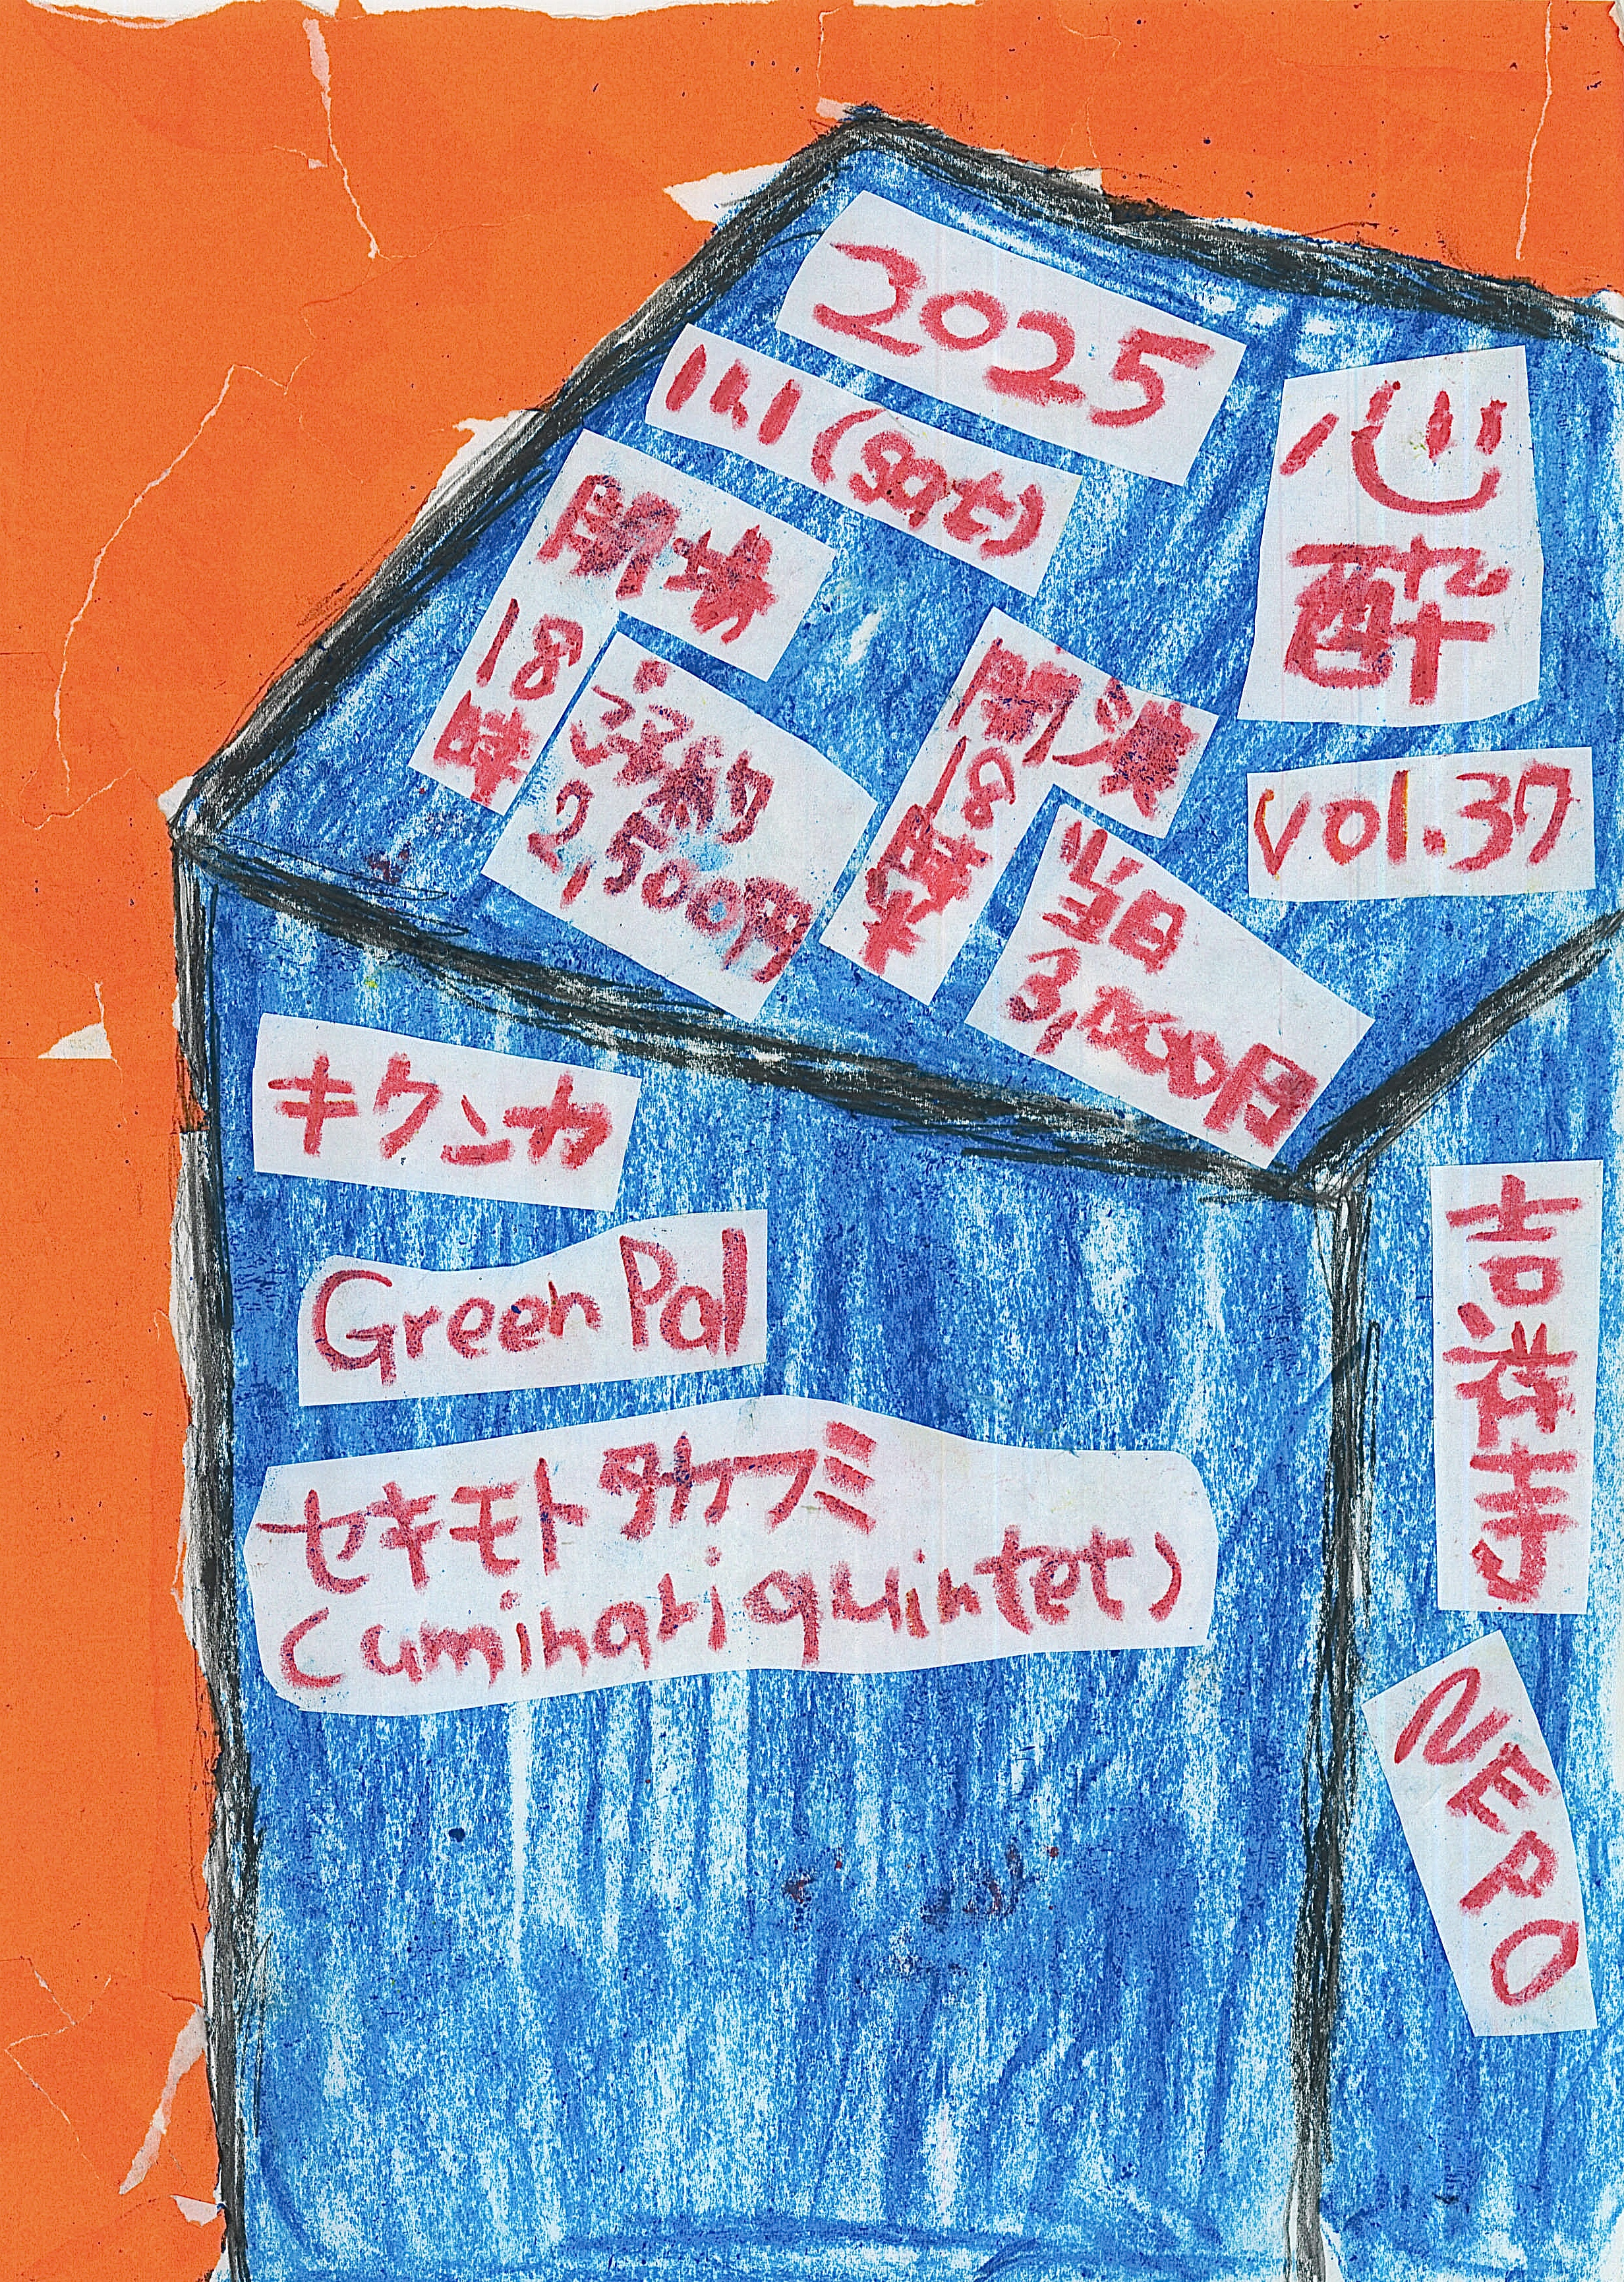 2025
11.1(sat)
心酔
vol.37
開場
18時
予約
2,500円
開演
18時半
当日
3,000円
キクンカ
Green Pal
セキモトタケフミ
(uminari quintet)
吉祥寺
NERO